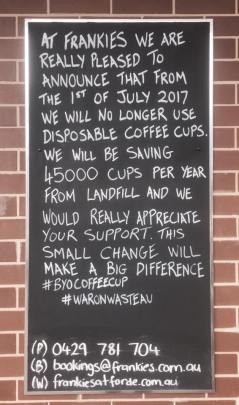 AT FRANKIES WE ARE
REALLY PLEASED TO
ANNOUNCE THAT FROM
THE 1ST OF JULY 2017
WE WILL NO LONGER USE
DISPOSABLE COFFEE CUPS.
WE WILL BE SAVING
45000 CUPS PER YEAR
FROM LANDFILL AND WE
WOULD REALLY APPRECIATE
YOUR SUPPORT. THIS
SMALL CHANGE WILL
MAKE A BIG DIFFERENCE
#BYOCOFFEECUP
#WARONWASTEAU
(P) 0429 781 704
(B) bookings@frankies.com.au
(W) frankiesatforde.com.au